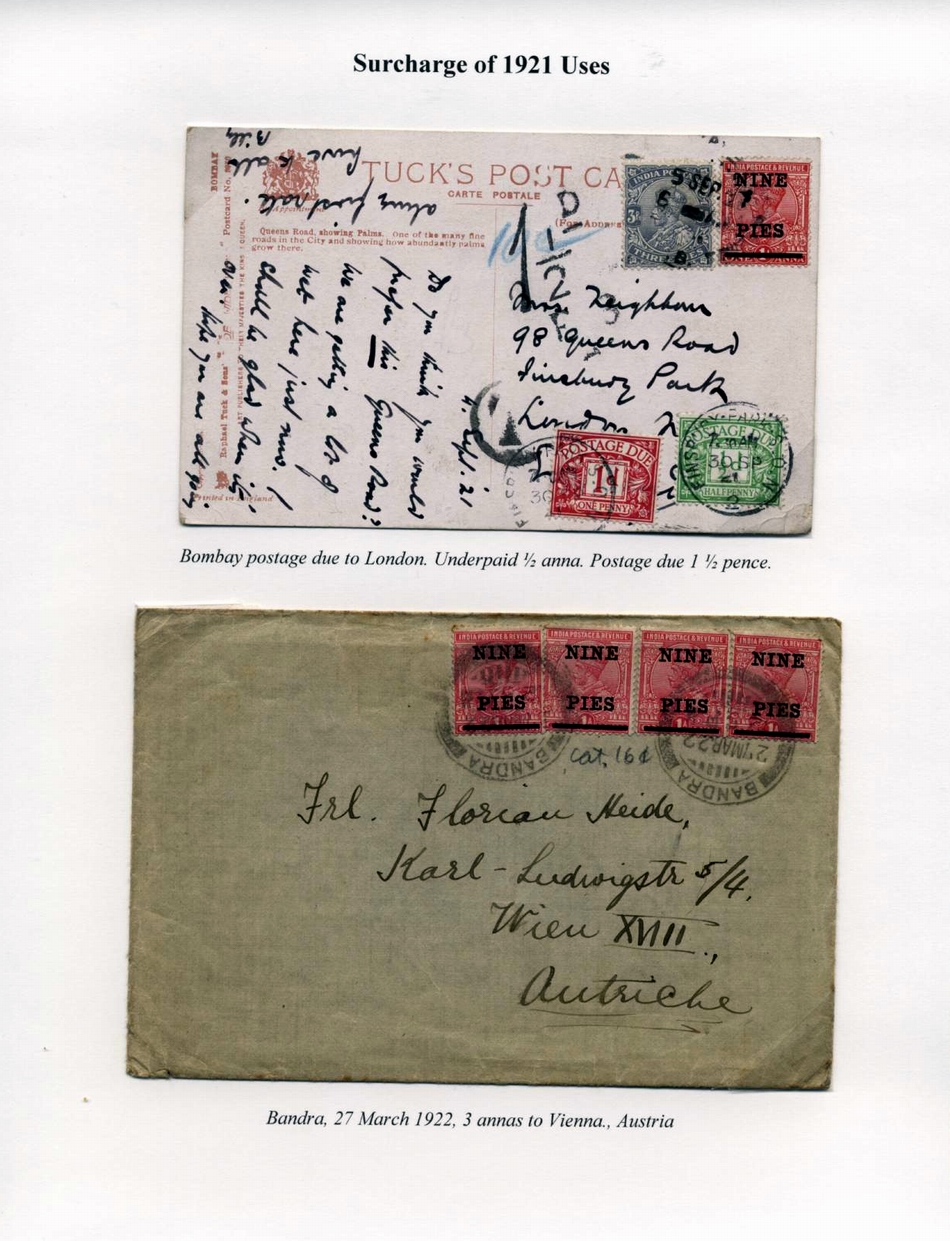 Surcharge of 1921 Uses
Billy
have to all
along first rate.
TUCK'S POST CA
CARTE POSTALE
(For Address
BOMBAY
Postcard No.
Queens Road, showing Palms. One of the many fine
roads in the City and showing how abundantly palms
grow there.
Raphael Tuck & Sons'
Printed in England
4. Sept. 21
Do you think you would
prefer this Queens Road?
We are getting a lot of
wet here just now. I
shall be glad when it is
over. Hope you are all going
INDIA POSTAGE
3P
THREE PIES
NINE
PIES
5 SEP
Miss Neighbour
98 Queens Road
Finsbury Park
London N
POSTAGE DUE
1D
ONE PENNY
POSTAGE DUE
½d
HALFPENNY
30 SP
21
Bombay postage due to London. Underpaid ½ anna. Postage due 1 ½ pence.
INDIA POSTAGE & REVENUE
NINE
PIES
INDIA POSTAGE & REVENUE
NINE
PIES
INDIA POSTAGE & REVENUE
NINE
PIES
INDIA POSTAGE & REVENUE
NINE
PIES
BANDRA
27 MAR 22
BANDRA
Cat. 16d
Frl. Florian Heide,
Karl-Ludwigstr 5/4.
Wien XVIII.,
Autriche
Bandra, 27 March 1922, 3 annas to Vienna., Austria